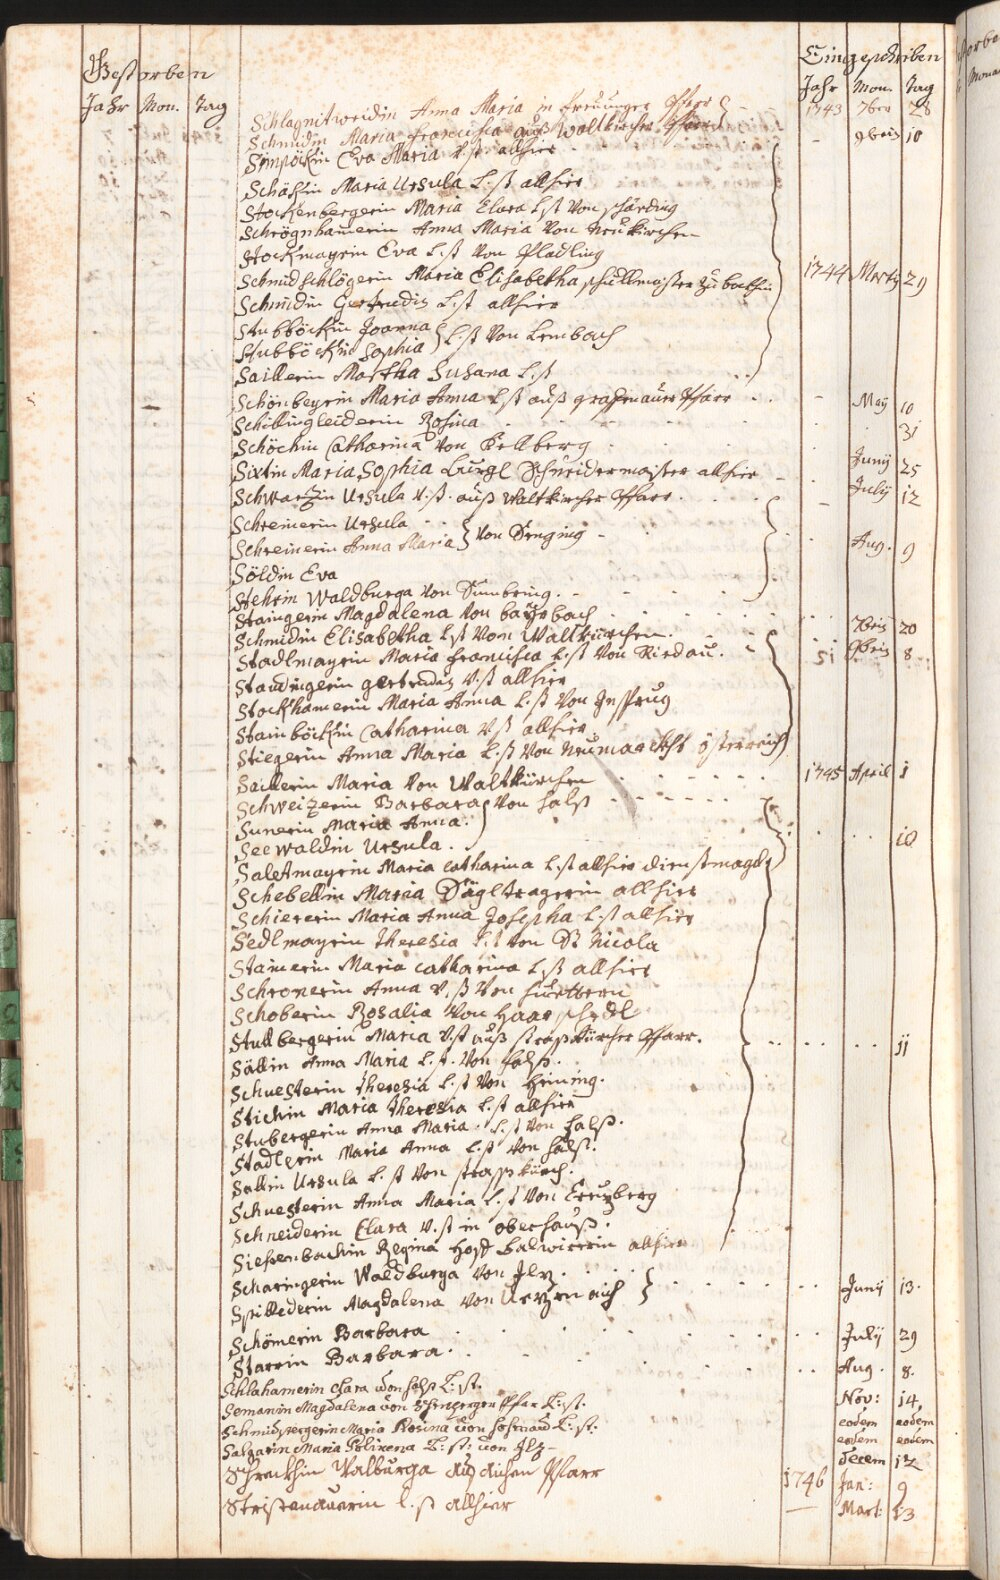 Gestorben Eingeschriben
Jahr Mon. Tag Jahr Mon. Tag
Schlagnitweidin Anna Maria in Pfarr 1743 7ber 28
Schmidin Maria Francisca auß Waltkircher Pfarr 9bris 10
Eva Maria v. st. allhier
Schäkin Maria Ursula L. st allhier
Stockenbergerin Maria Clara L st Von schärding
Schrögnhamerin Anna Maria Von Neukirchen
Stockmayrin Eva L. st Von Pladling
Schmidschlögerin Maria Elisabetha schullmaister zu 1744 Marty 29
Schmidin Gertrudis L. st allhier
Stubböckin Joanna
Stubböckin Sophia L. st Von Lembach
Saillerin Martha Susana L. st
Schönbeyrin Maria Anna L st auß Pfarr - May 10
Schillingleiderin Rosina 31
Schöchin Catharina Von Kellberg
Sixtin Maria Sophia burgl Schneidermaister allhier Juny 25
Schwarzin Ursula v. st. auß Waltkircher Pfarr. - July 12
Schreinerin Ursula
Schreinerin Anna Maria Von Aug. 9
Söldin Eva
Stehrin Waldburga Von
Staingerin Magdalena Von bayrbach
Schmidin Elisabetha L st Von Waltkürchen. 7bris 20
Stadlmayrin Maria Francisca L. st Von Riedau. 9bris 8
Staudingerin gertrudis v. st allhier
Stockhamerin Maria Anna L. st Von Insprug
Stainböckin Catharina v st allhier
Stiegerin Anna Maria L. st Von Neumarckht österreich
Saillerin Maria Von Waltkürchen 1745 April 1
Schweizerin Barbara Von halß
Sunerin Maria Anna.
Seewaldin Ursula. 10
Saletmayrin Maria Catharina L. st allhier dienstmagd
Schebellin Maria Sägltragerin allhier
Schiererin Maria Anna Josepha L. st allhier
Sedlmayrin Theresia L. st Von St Nicola
Stainerin Maria Catharina L. st allhier
Schronerin Anna v. st Von
Schoberin Rosalia Von Haarschedl
Stullbergerin Maria v. st auß straßkürcher Pfarr. 11
Sällin Anna Maria L. st. Von halß.
Schuesterin Theresia L. st Von Heining.
Stichin Maria Theresia L. st allhier
Stubergerin Anna Maria L. st Von halß.
Stadlerin Maria Anna L. st Von halß.
Sallin Ursula L. st Von strasskürch.
Schuesterin Anna Maria L. st Von Creuzberg
Schneiderin Clara v. st in oberhauß.
Siessenbachin Regina Hoff balwirerin allhier
Scharingerin Waldburga Von Ilz.
Spillederin Magdalena Von Juny 13.
Schömerin Barbara July 29
Starrin Barbara. Aug. 8.
Schlahamerin Clara von halß L: st. Nov: 14.
Semanin Magdalena von Pfar L: st. eodem eodem
Schmidpergerin Maria Rosina von L: st: eodem eodem
Salgarin Maria Polixena L: st: von Ilz Decem 12
Schreckhin Walburga Pfarr 1746 Jan: 9
Stristenauerin l. st allhier — Mart: 13